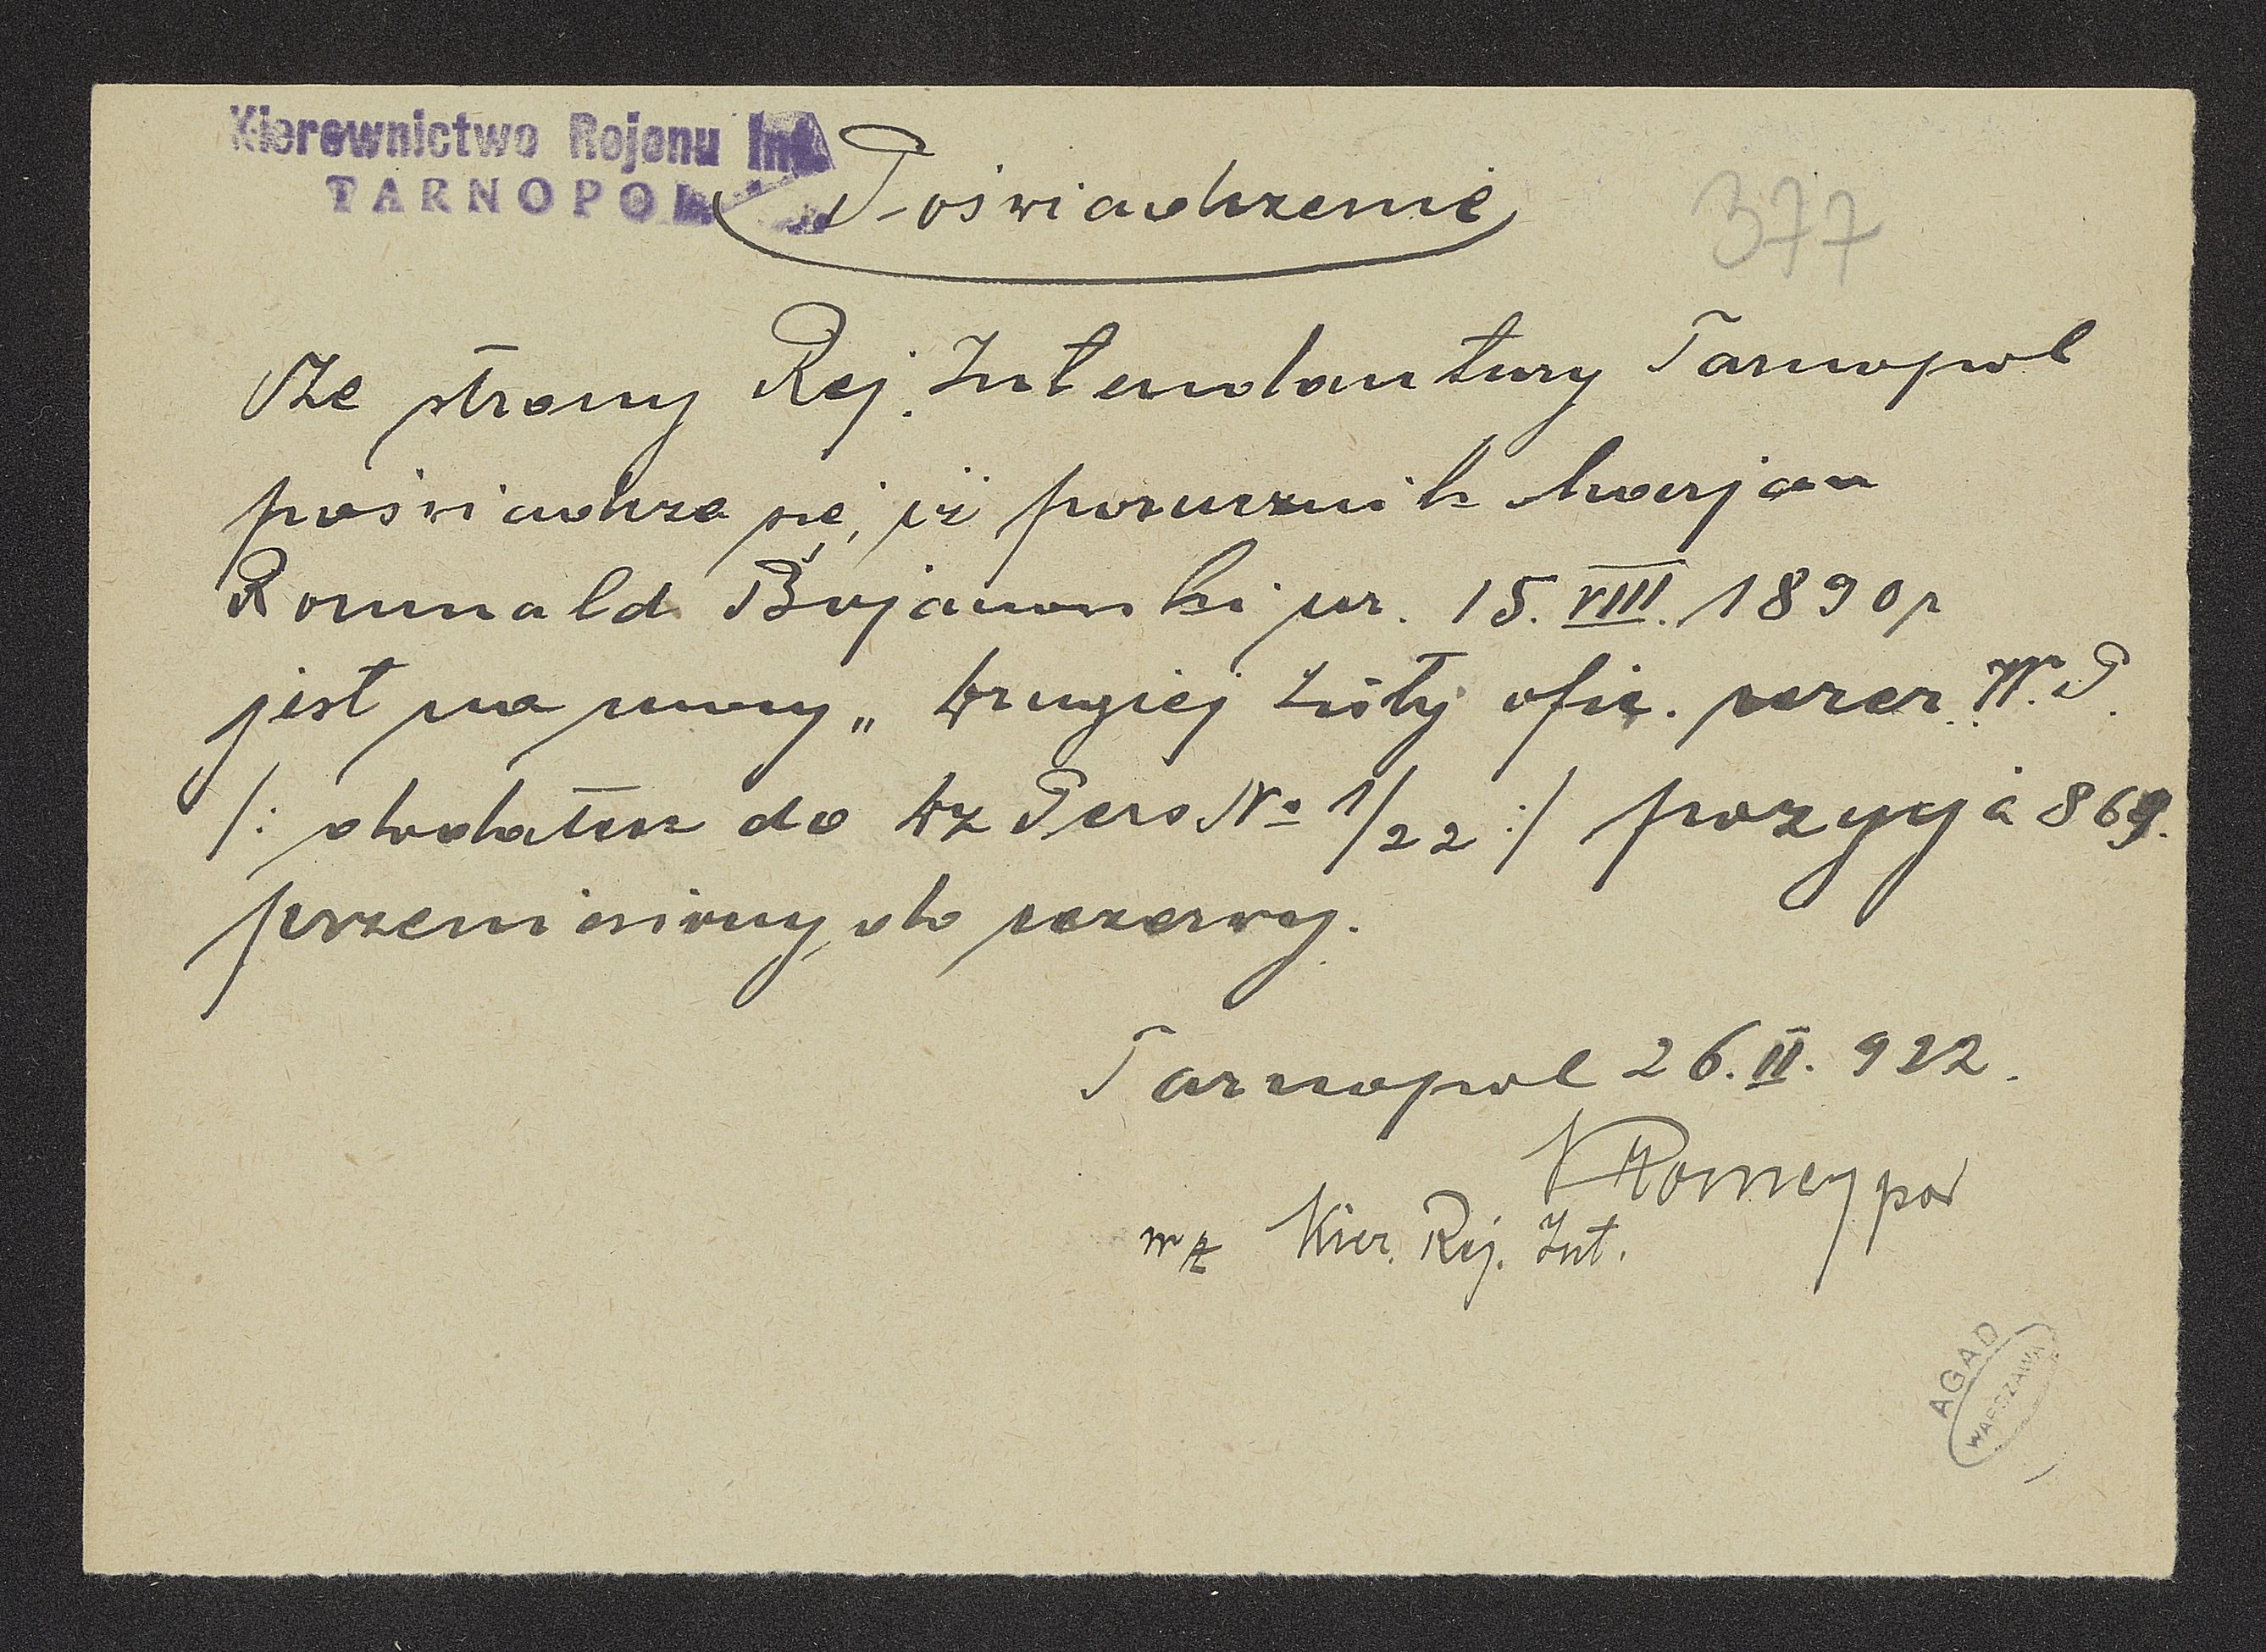 Kierownictwo Rejonu Int.
TARNOPOL
Poświadczenie
377
Ze strony Rej. Intendantury Tarnopol
poświadcza się, iż porucznik Marjan
Romuald Bojanowski ur. 15. VIII. 1890 r
jest na mocy „ drugiej Listy ofic. rezer. W. P.
/: dodatek do Dz Pers No 1/22 :/ pozycja 869.
przeniesiony do rezerwy.
Tarnopol 26. II. 922.
por
w z Kier. Rej. Int.
AGAD
WARSZAWA